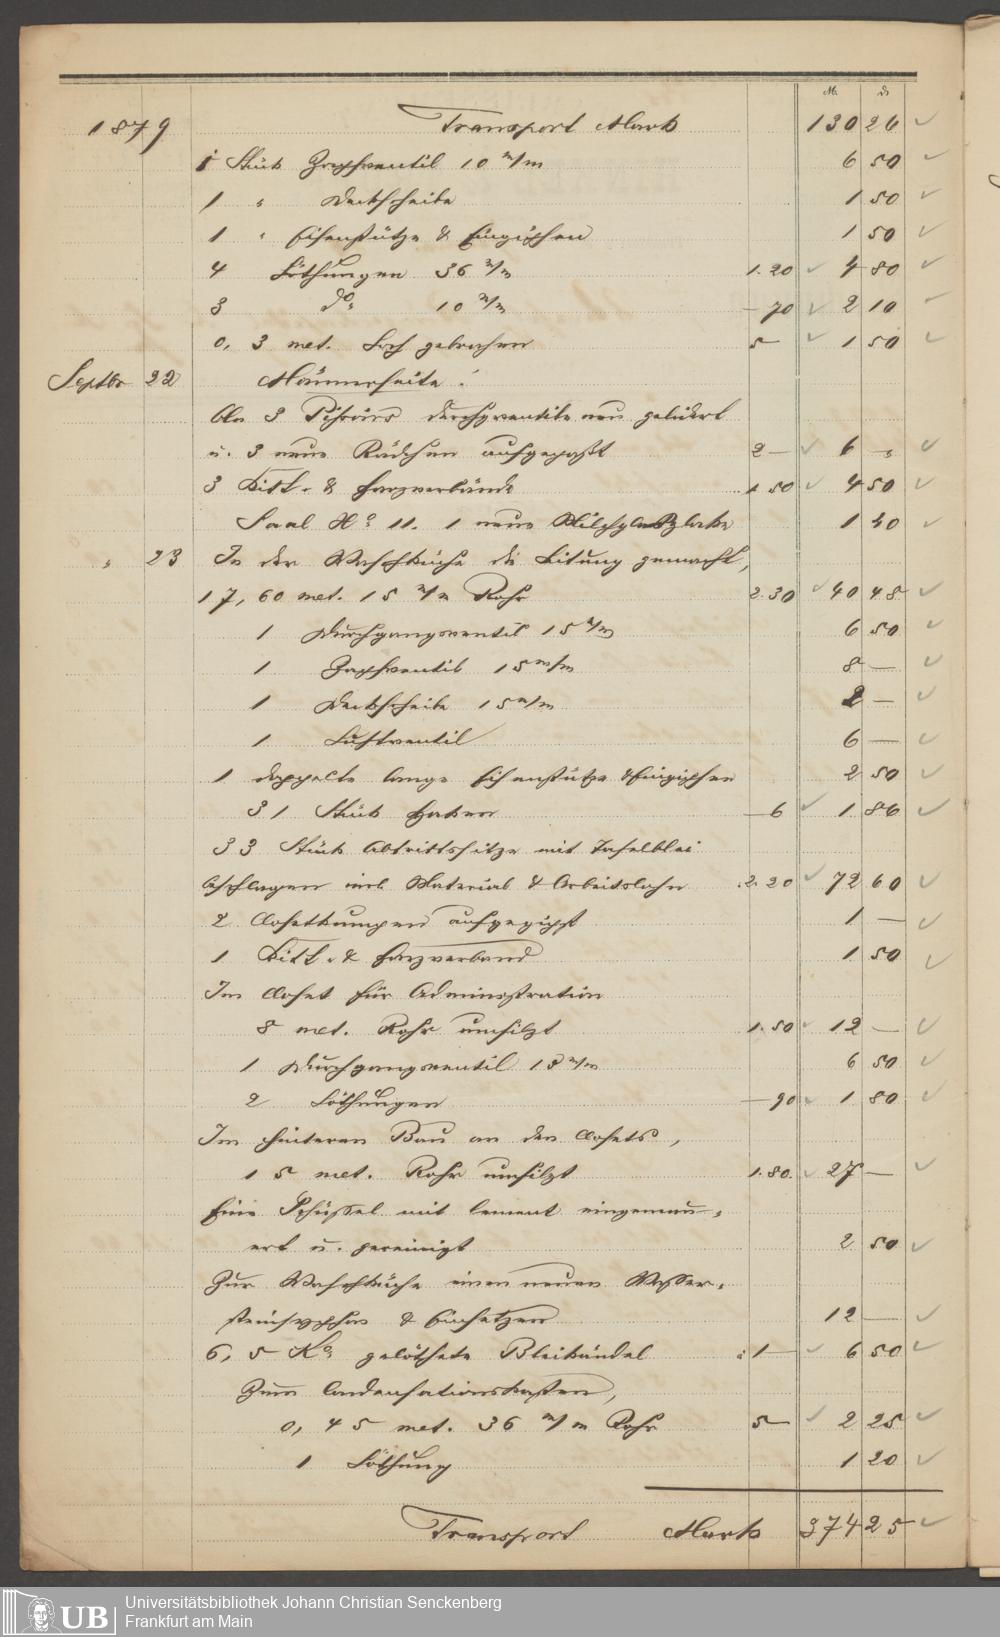 M. ₰
1879 Transport Mark 130 26
1 Stück Zapfventil 10 m/m 6 50
1 " Deckscheibe 1 50
1 " Eisenstütze & Eingipsen 1 50
4 Löthungen 36 m/m 1.20 4 80
3 do. 10 m/m -70 2 10
0,3 met. Loch gebrochen 5 1 50
Septbr 22 Männerseite:
An 3 Pissoirs neu gelidert
u. 3 neue Rädchen aufgepaßt 2- 6 -
3 Kitt- & Harzverbände 1.50 4 50
Saal No 11. 1 neue 1 40
" 23 In der Waschküche die Leitung gemacht,
17,60 met. 15 m/m Rohr 2.30 40 48
1 Durchgangsventil 15 m/m 6 50
1 Zapfventil 15 m/m 8 -
1 Deckscheibe 15 m/m 2 -
1 Luftventil 6 -
1 doppelte lange Eisenstütze & Eingipsen 2 50
31 Stück Haken -6 1 86
33 Stück Abtrittssitze mit Tafelblei
beschlagen incl. Material & Arbeitslohn 2.20 72 60
2 Closetkumpen aufgegipst 1 -
1 Kitt- & Harzverband 1 50
Im Closet für Administration
8 met. Rohr umfilzt 1.50 12 -
1 Durchgangsventil 13 m/m 6 50
2 Löthungen -90 1 80
Im hinteren Bau an den Closets,
15 met. Rohr umfilzt 1.80. 27 -
Eine Schüssel mit Cement eingemau-
ert u. gereinigt 2 50
Zur Waschküche einen neuen Wasser-
steinsyphon & Einsetzen 12 -
6,5 Ko. gelöthete Bleikändel à 1- 6 50
Zum Condensationskasten,
0,45 met. 36 m/m Rohr 5- 2 25
1 Löthung 1 20
Transport Mark 374 25
UB Universitätsbibliothek Johann Christian Senckenberg
Frankfurt am Main